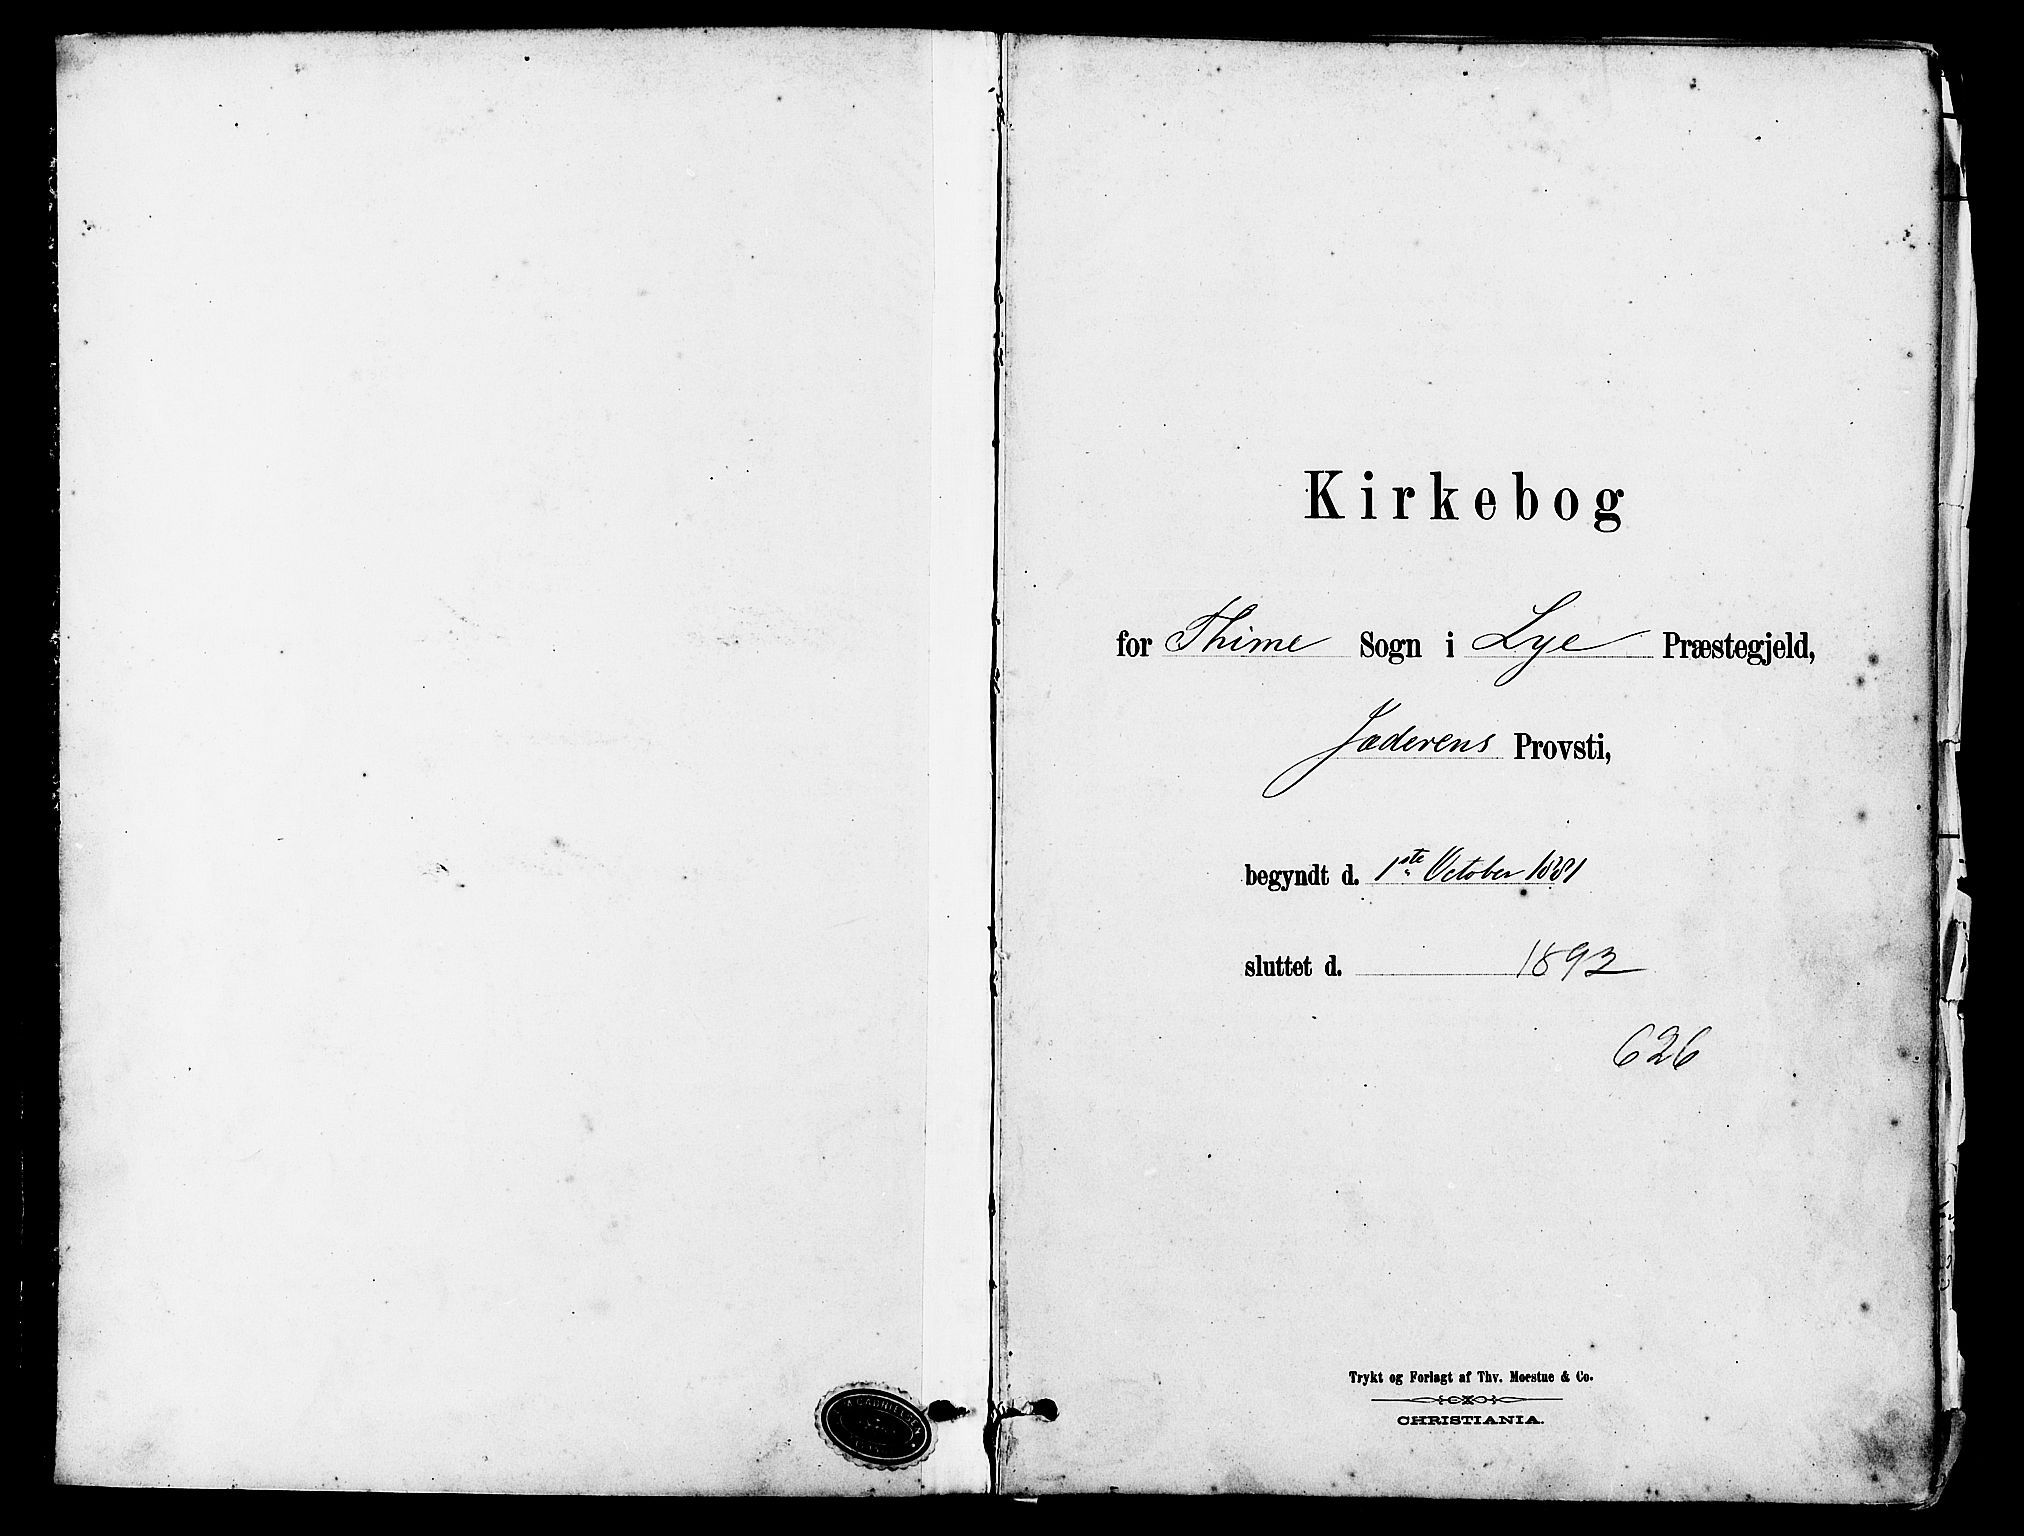 Kirkebog
for Thime Sogn i Lye Præstegjeld,
Jæderens Provsti,
begyndt d. 1ste October 1881
sluttet d. 1892
626
Trykt og Forlagt af Thv. Moestue & Co.
CHRISTIANIA.
GABRIELSEN